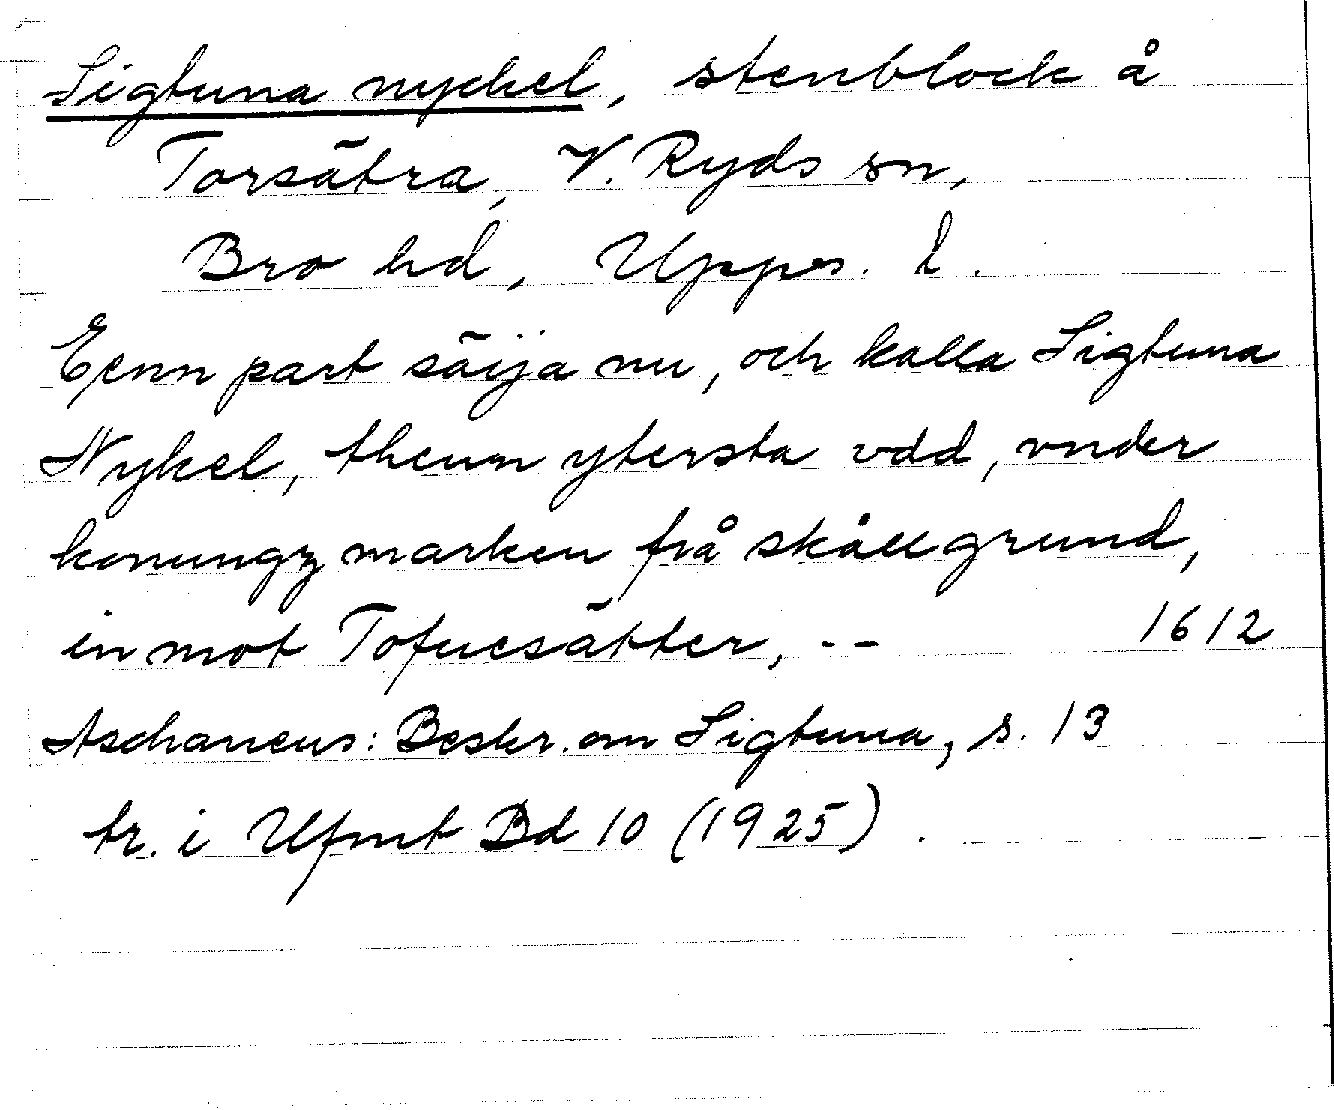 Sigtuna nyckel, stenblock å
Torsätra, V. Ryds sn,
Bro hd, Upps. l.
Eenn part säija nu, och kalla Sigtuna
Nykel, thenn ytersta vdd, vnder
konungz marken frå skällgrund,
in mot Tofuesätter, --   1612
Aschaneus: Beskr. om Sigtuna, s. 13
tr. i Ufmt Bd 10 (1925).